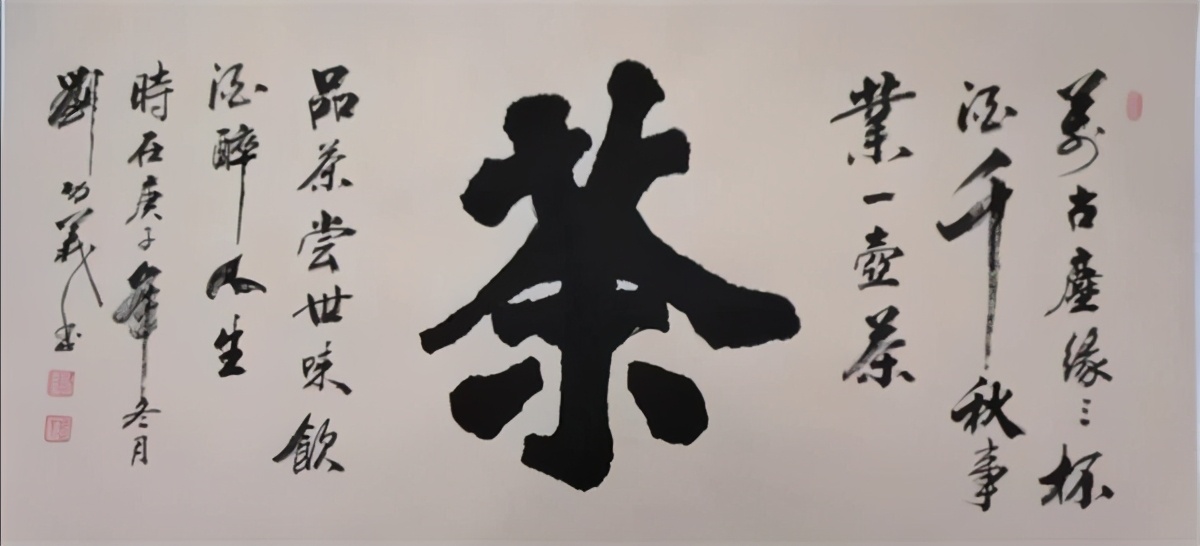 萬古塵緣三杯
酒千秋事
業一壺茶
茶
品茶尝世味飲
酒醉人生
時在庚子年冬月
劉功義书